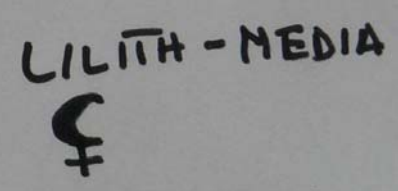 LILITH - MEDIA
⚸